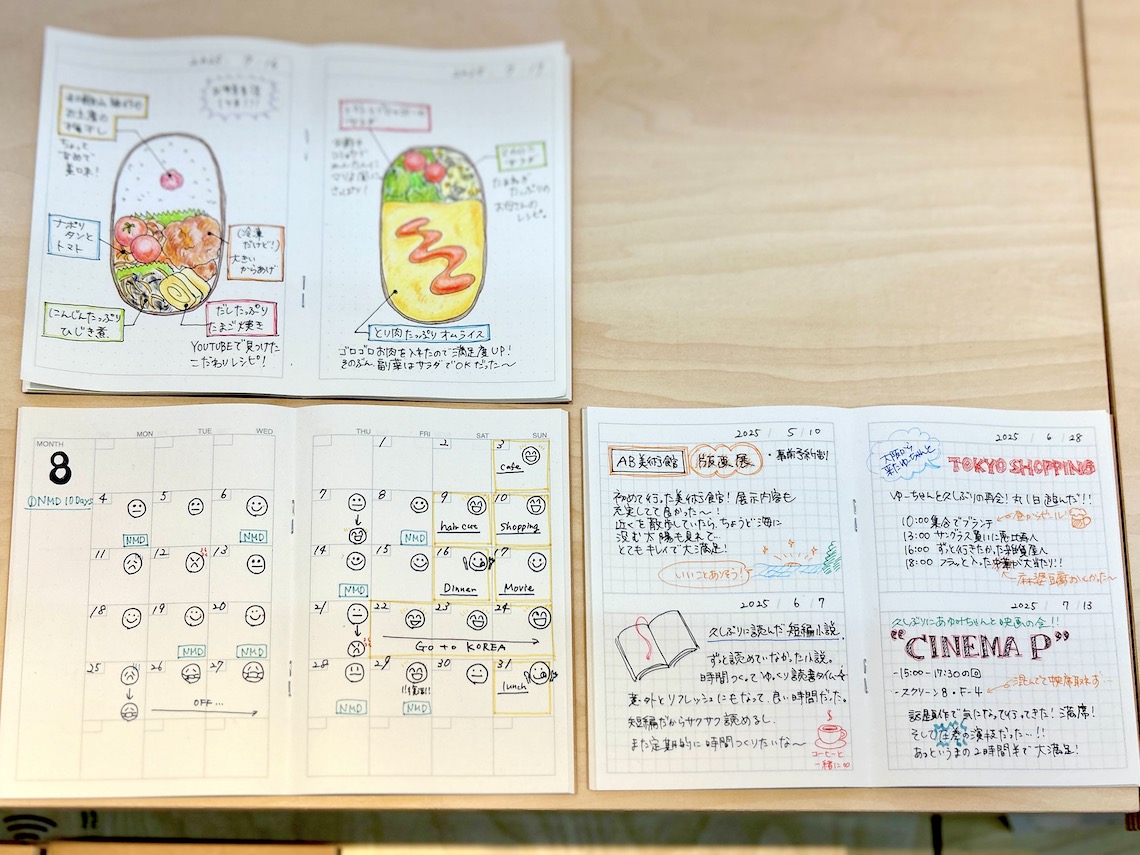 2025 / 9 / 16
お弁当生活
お土産の
梅干し
ちょっと
甘めで
美味!
ナポリ
タンと
トマト
(冷凍
だけど!)
大きい
からあげ
にんじんたっぷり
ひじき煮
だしたっぷり
たまご焼き
YOUTUBEで見つけた
こだわりレシピ!
サラダ
さっぱり!
サラダ
たまねぎ
たっぷりの
お母さんの
レシピ。
とり肉たっぷりオムライス
ゴロゴロお肉を入れたので満足度UP!
そのぶん、副菜はサラダでOKだった〜
MONTH
8
MON
TUE
WED
THU
FRI
SAT
SUN
1
2
3
cafe
NMD 10 Days
4
5
6
7
8
9
10
NMD
NMD
NMD
hair cut
shopping
11
12
13
14
15
16
17
NMD
Dinner
Movie
18
19
20
21
22
23
24
NMD
NMD
Go to KOREA
25
26
27
28
29
30
31
NMD
OFF...
NMD
NMD
lunch
2025 / 5 / 10
AB美術館
版画展
・事前予約割
初めて行った美術館!展示内容も
充実してて良かった〜!
近くを散歩していたら、ちょうど海に
沈む太陽も見れて…
とてもキレイで大満足!
いいことありそう!
2025 / 6 / 7
久しぶりに読んだ短編小説。
ずっと読めていなかった小説。
時間つくってゆっくり読書タイム
意外とリフレッシュにもなって、良い時間だった。
短編だからサクサク読めるし、
また定期的に時間つくりたいな〜
コーヒーと
一緒に
2025 / 6 / 28
大阪から
来たゆーちゃんと
TOKYO SHOPPING
ゆーちゃんと久しぶりの再会!丸1日遊んだ!!
10:00 集合でブランチ
昼からビール!
13:00 サングラス買いに
16:00 ずっと行きたかった雑貨屋へ
18:00 フラっと入った中華が大当たり!!
麻婆豆腐おいしかった〜
2025 / 7 / 13
久しぶりにあゆみちゃんと映画の会!!
"CINEMA P"
-15:00-17:30の回
-スクリーン8・F-4
混んでて中央席取れず…
話題作で気になって行ってきた!満席!
そして圧巻の演技だった…!!
あっというまの2時間半で大満足!